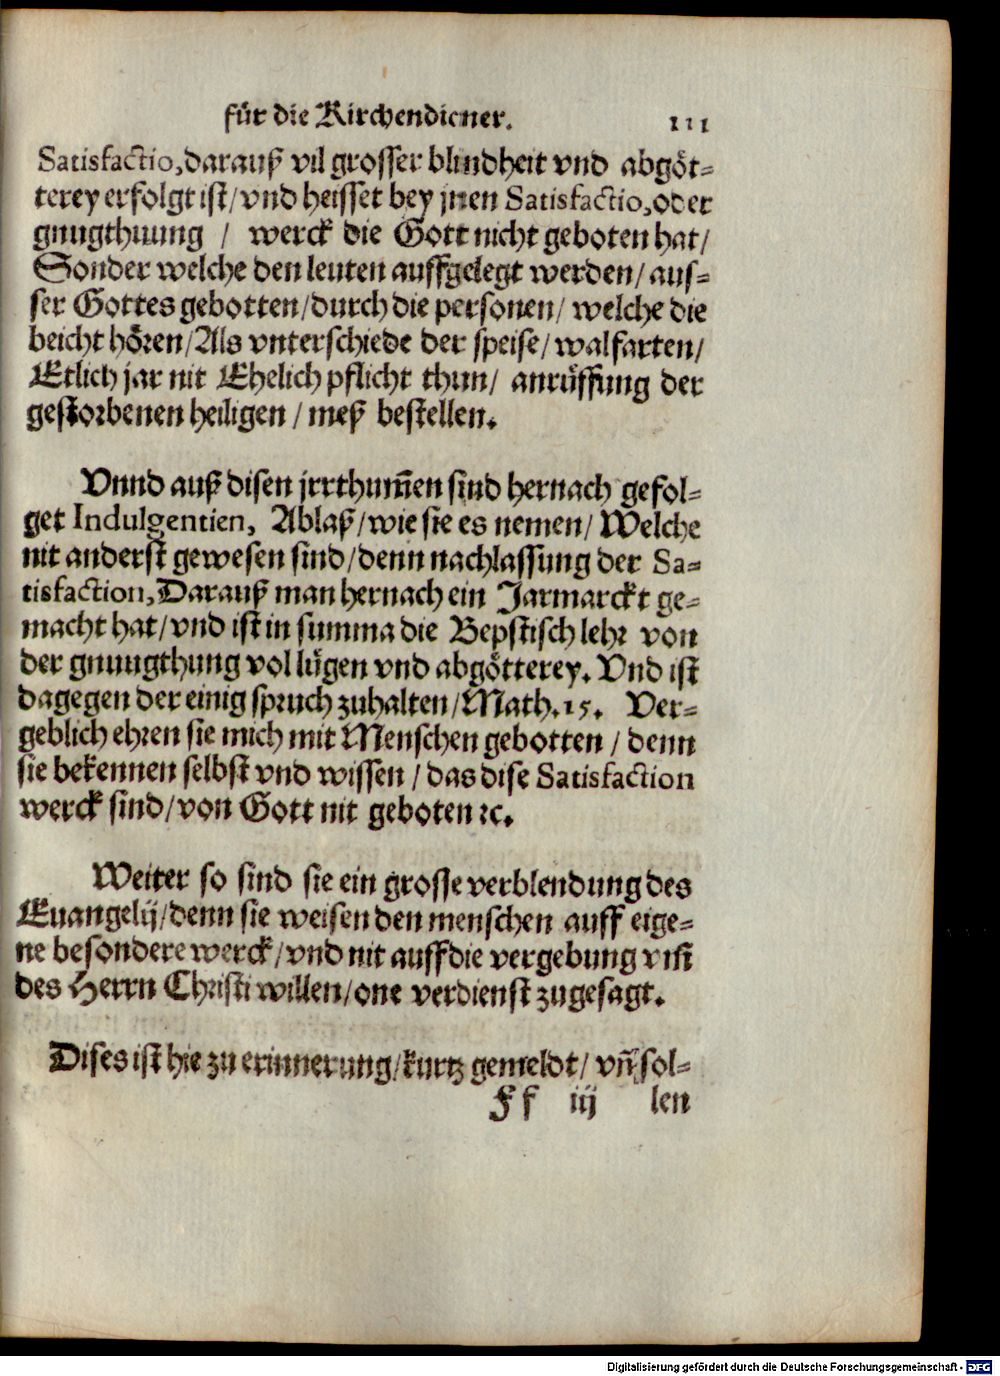 für die Kirchendiener. 111
Satisfactio, darauß vil grosser blindheit vnd abgöt-
terey erfolgt ist/ vnd heisset bey jnen Satisfactio, oder
gnugthuung / werck die Gott nicht geboten hat/
Sonder welche den leuten auffgelegt werden/ aus-
ser Gottes gebotten/ durch die personen/ welche die
beicht hören/ Als vnterschiede der speise/ walfarten/
Etlich jar nit Ehelich pflicht thun/ anrüffung der
gestorbenen heiligen / meß bestellen.
Vnnd auß disen jrrthum̃en sind hernach gefol-
get Indulgentien, Ablaß/ wie sie es nemen/ Welche
nit anderst gewesen sind/ denn nachlassung der Sa-
tisfaction, Darauß man hernach ein Jarmarckt ge-
macht hat/ vnd ist in summa die Bepstisch lehr von
der gnuugthung vol lügen vnd abgötterey. Vnd ist
dagegen der einig spruch zuhalten/ Math. 15. Ver-
geblich ehren sie mich mit Menschen gebotten / denn
sie bekennen selbst vnd wissen / das dise Satisfaction
werck sind/ von Gott nit geboten ꝛc.
Weiter so sind sie ein grosse verblendung des
Euangelij/ denn sie weisen den menschen auff eige-
ne besondere werck/ vnd nit auff die vergebung vm̃
des Herrn Christi willen/ one verdienst zugesagt.
Dises ist hie zu erinnerung/ kurtz gemeldt/ vñ sol-
Ff iij len
Digitalisierung gefördert durch die Deutsche Forschungsgemeinschaft - DFG